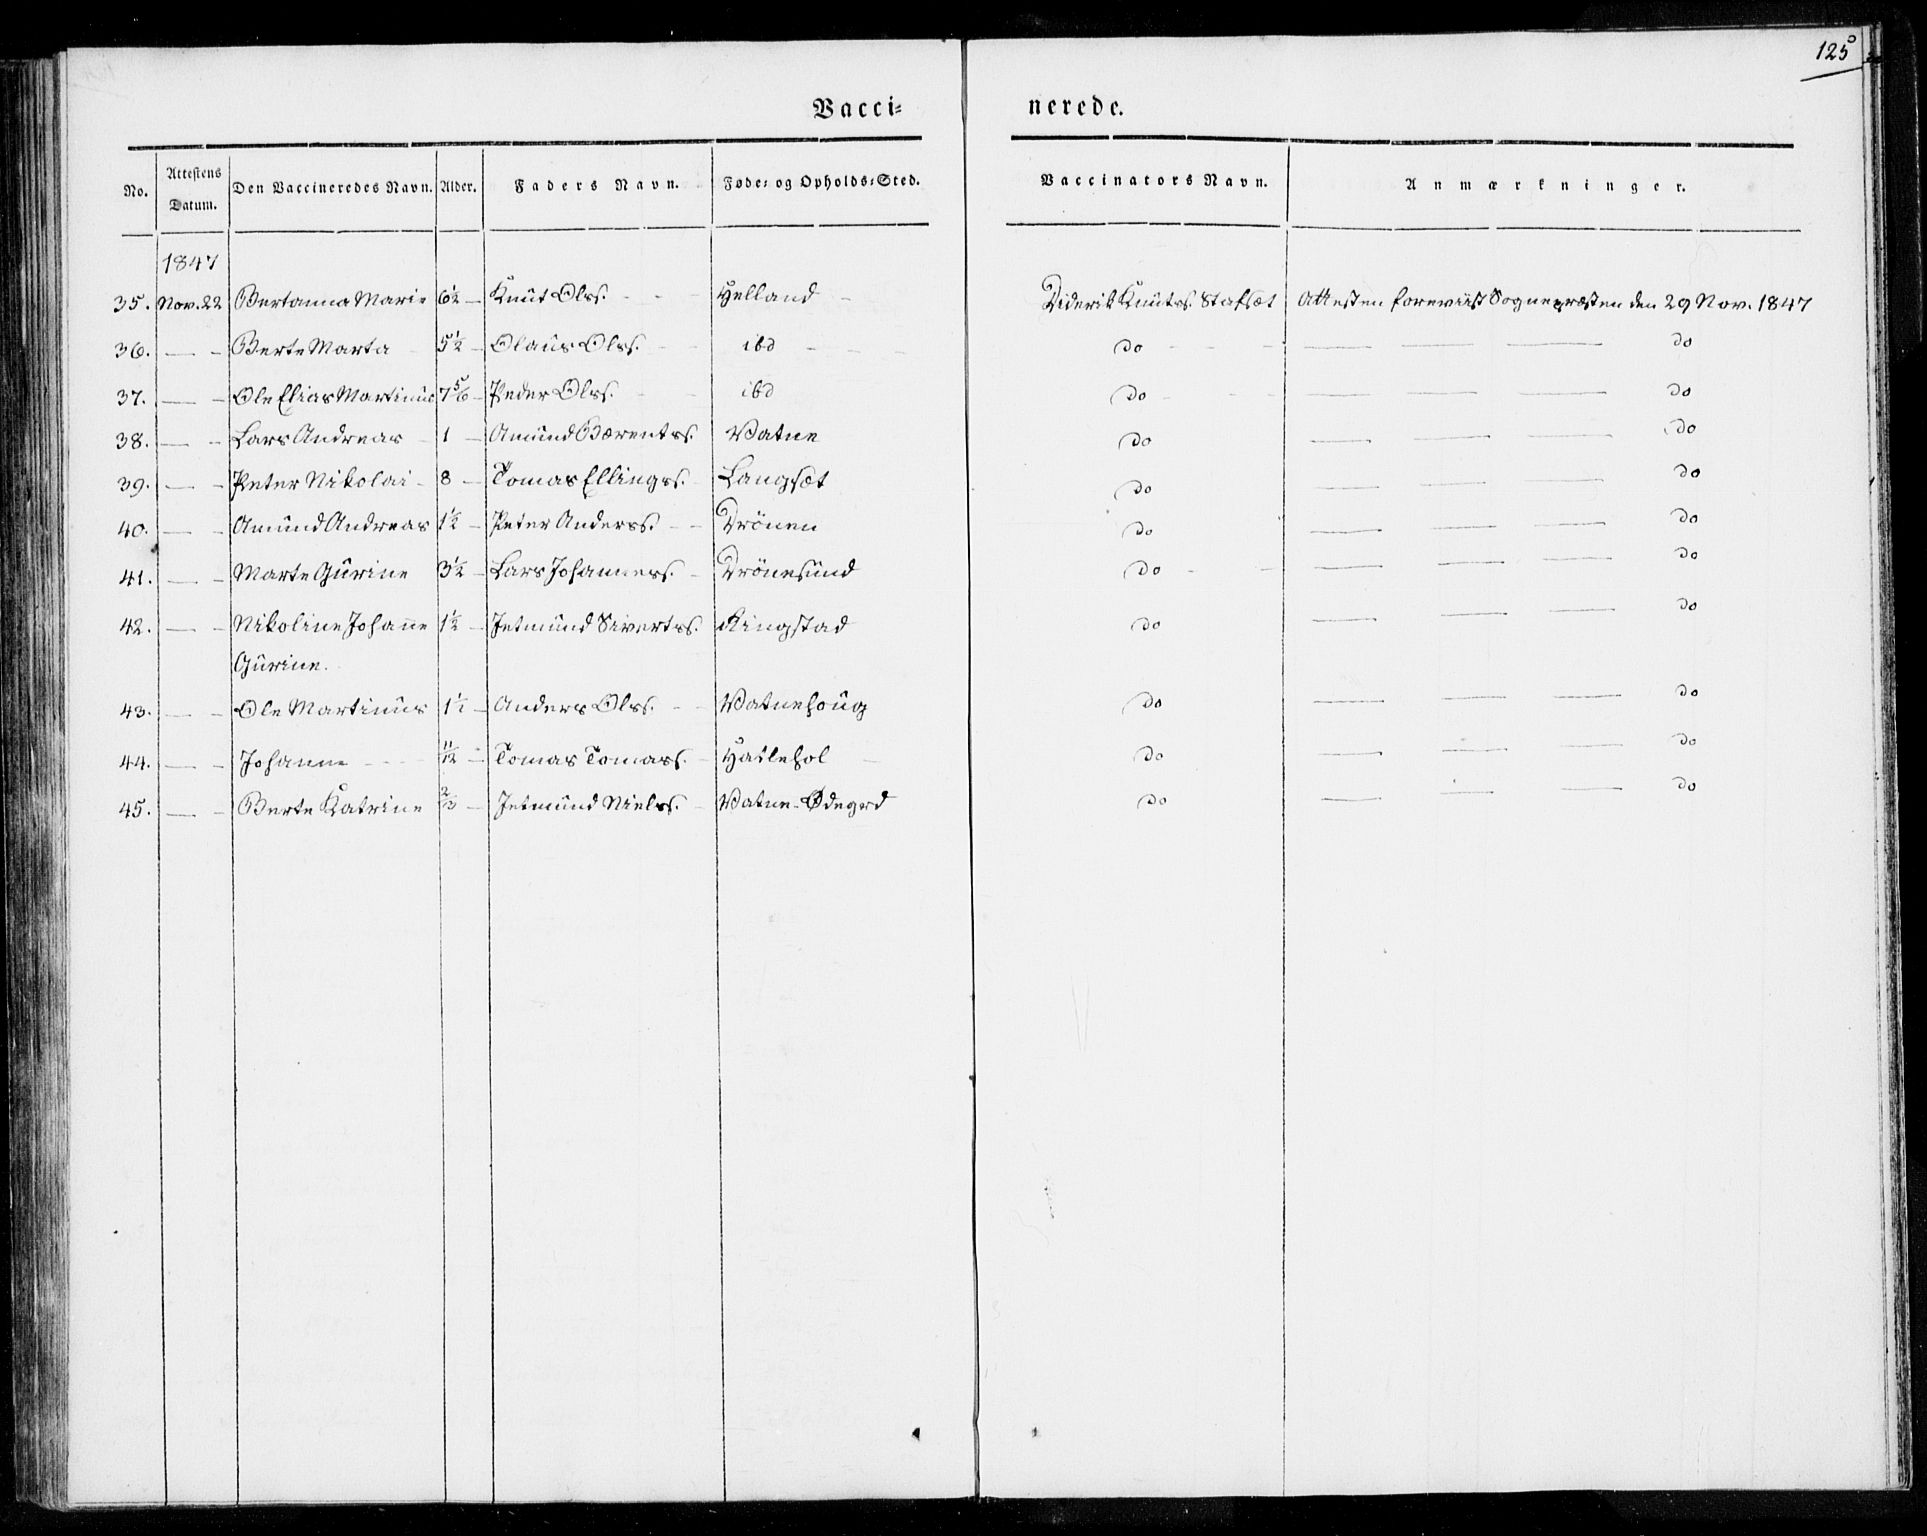 125
Vacci-
nerede.
No. Attestens Datum. Den Vaccineredes Navn. Alder. Faders Navn. Føde- og Opholds-Sted. Vaccinators Navn. Anmærkninger.
1847
35. Nov. 22 Bertanna Marie 6½ Knut Ols. Helland Diderik Knuts. Stafset Attesten foreviist Sognepræsten den 29 Nov. 1847
36. — - Berte Marta 5½ Olaus Ols. ibd do — — — do
37. — - Ole Elias Martinus 7 5/6 Peder Ols. ibd do — — — do
38. — - Lars Andreas 1 Amund Bærents. Vatne do — — — do
39. — - Peter Nikolai 8 Tomas Ellings. Langset do — — — do
40. — - Amund Andreas 1½ Peter Anders. Drönen do — — — do
41. — - Marte Gurine 3½ Lars Johannes. Drönesund do — — — do
42. — - Nikoline Johanne 1½ Jetmund Siverts. Ringstad do — — — do
Gurine.
43. — - Ole Martinus Anders Ols. Vatnehoug do — — — do
44. — - Johanne 11/12 Tomas Tomass. Hatlehol do — — — do
45. — - Berte Katrine 2/3 Jetmund Niels. Vatne-Ødegrd do — — — do